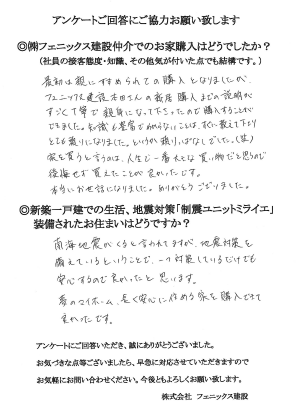 アンケートご回答にご協力お願い致します
◎㈱フェニックス建設仲介でのお家購入はどうでしたか？
（社員の接客態度・知識、その他気が付いた点でも結構です。）
最初は親にすすめられての購入となりましたが、
フェニックス建設本田さんの新居購入までの説明が
すごく丁寧で親身になって下さったので購入することが
できました。知識も豊富でわからないことは、すぐに教えて下さり
とても頼りになりました。というか頼りぱなしでした。(笑)
家を買うと言うのは、人生で一番大きな買い物だと思うので
後悔せず買えたことが良かったです。
本当にお世話になりました。ありがとうございました。
◎新築一戸建での生活、地震対策「制震ユニットミライエ」
装備されたお住まいはどうですか？
南海地震がくると言われてますが、地震対策を
備えているということで、一つ対策しているだけでも
安心するので良かったと思います。
夢のマイホーム、長く安心に住める家を購入できて
良かったです。
アンケートにご回答いただき、誠にありがとうございました。
お気づきな点等ございましたら、早急に対応させていただきますので
お気軽にお問い合わせください。今後ともよろしくお願い致します。
株式会社 フェニックス建設